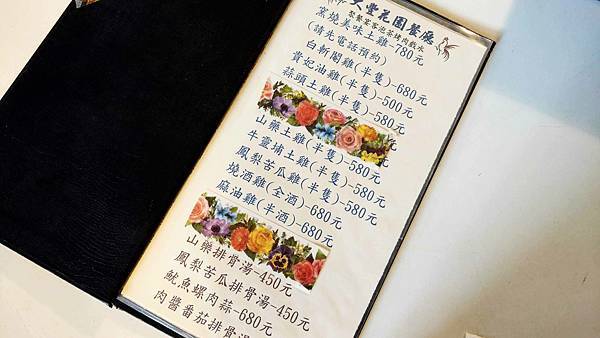 豐花園餐廳
聚餐宴客泡茶烤肉戲水
窯燒美味土雞-780元
(請先電話預約)
白斬閹雞(半隻)-680元
貴妃油雞(半隻)-500元
蒜頭土雞(半隻)-580元
山藥土雞(半隻)-580元
牛靈埔土雞(半隻)-580元
鳳梨苦瓜雞(半隻)-580元
燒酒雞(全酒)-680元
麻油雞(半酒)-680元
山藥排骨湯-450元
鳳梨苦瓜排骨湯-450元
魷魚螺肉蒜-680元
肉醬番茄排骨湯